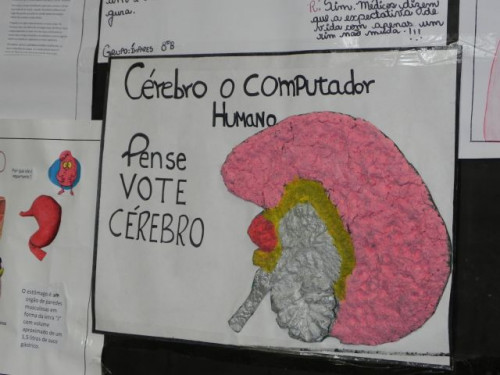 gura.
GRUPO: ÍMPARES 8ºB
R: Sim. Médicos dizem
que a expectativa de
vida com apenas um
rim não muda.!!!
Cérebro o computador
HUMANO
Pense
VOTE
CÉREBRO
Por que ele é
importante?
O estômago é um
órgão de paredes
musculosas em
forma da letra "J"
com volume
aproximado de um
1,5 litros de suco
gástrico.